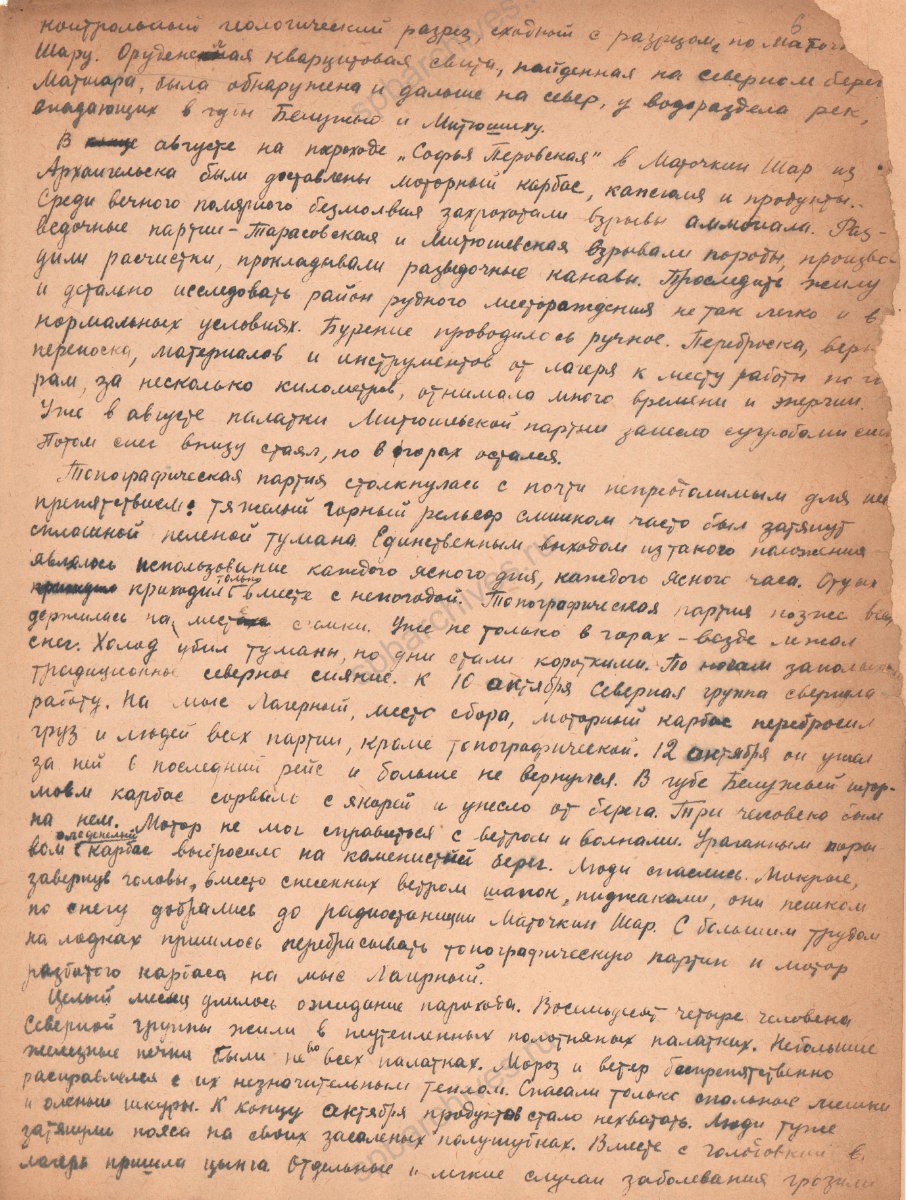 6
контрольный геологический разрез сходный с разрезом по Маточк
Шару. Оруденелая кварцитовая свита, найденная на северном берег
Матшара, была обнаружена и дальше на север, у водораздела рек,
впадающих в губы Белужью и Митюшиху.
В августе на пароходе „Софья Перовская" в Маточкин Шар из
Архангельска были доставлены моторный карбас, кансаля и продукты.
Среди вечного полярного безмолвия загрохотали взрывы аммонала. Раз-
ведочные партии – Тарасовская и Митюшевская взрывали породы, произво-
дили расчистки, прокладывали разведочные канавы. Проследить жилу
и детально исследовать район рудного месторождения не так легко и в
нормальных условиях. Бурение проводилось ручное. Переброска, верн
переноска, материалов и инструментов от лагеря к месту работы по г
рам, за несколько километров, отнимала много времени и энергии.
Уже в августе палатки Митюшевской партии занесло сугробами сне
Потом снег внизу стаял, но в горах остался.
Топографическая партия столкнулась с почти непреодолимым для не
препятствием: тяжелый горный рельеф слишком часто был затянут
сплошной пеленой тумана. Единственным выходом из такого положения
являлось использование каждого ясного дня, каждого ясного часа. Отдых
приходил только вместе с непогодой. Топографическая партия позже всех
держалась на месте съемки. Уже не только в горах – везде лежал
снег. Холод убил туманы, но дни стали короткими. По ночам заполыхало
традиционное северное сияние. К 10 октября Северная группа свернула
работу. На мыс Лагерный, место сбора, моторный карбас перебросил
груз и людей всех партий, кроме топографической. 12 октября он ушел
за ней в последний рейс и больше не вернулся. В губе Белужьей штор-
мом карбас сорвало с якорей и унесло от берега. Три человека были
на нем. Мотор не мог справиться с ветром и волнами. Ураганным поры-
вом оледенелый карбас выбросило на каменистый берег. Люди спаслись. Мокрые,
завернув головы, вместо снесенных ветром шапок, пиджаками, они пешком
по снегу добрались до радиостанции Маточкин Шар. С большим трудом
на лодках пришлось перебрасывать топографическую партию и мотор
разбитого карбаса на мыс Лагерный.
Целый месяц длилось ожидание парохода. Восемьдесят четыре человека
Северной группы жили в неутепленных полотняных палатках. Небольшие
железные печки были не во всех палатках. Мороз и ветер беспрепятственно
расправлялся с их незначительным теплом. Спасали только спальные мешки
и оленьи шкуры. К концу октября продуктов стало нехватать. Люди туже
затянули пояса на своих засаленых полушубках. Вместе с голодовкой в
лагерь пришла цынга. Отдельные и легкие случаи заболевания грозили
spbarchives.ru